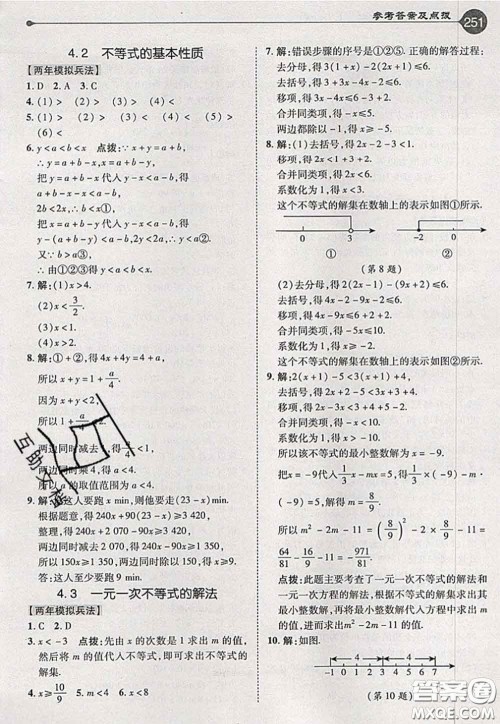 参考答案及点拨
251
4.2 不等式的基本性质
【两年模拟兵法】
1. D 2. A 3. C
4. (1) > (2) > (3) < (4) <
5. (1) > (2) > (3) > (4) < (5) >
(6) <
6. y<a<b<x 点拨:∵x+y=a+b,
∴y=a+b-x,x=a+b-y,
把y=a+b-x代入y-x<a-b,得
2b<2x,∴b<x①,
把x=a+b-y代入y-x<a-b,得
2y<2a,∴y<a②,
∴由①②③得y<a<b<x.
7. 解:(1)x>4.
(2)x<3/2.
(3)x<2.
(4)x<2.
8. 解:①+②,得4x+4y=4+a,
所以x+y=1+a/4.
因为x+y<2,
所以1+a/4<2.
两边同时减去1,得a/4<1,
两边同时乘4,得a<4.
所以a的取值范围为a<4.
9. 解:设这人要跑x min,则他要走(23-x)min.
根据题意,得240x+90(23-x)≥3420.
整理,得240x+2070-90x≥3420,
两边同时减去2070,得150x≥1350,
两边同时除以150,得x≥9.
答:这人至少要跑9 min.
4.3 一元一次不等式的解法
【两年模拟兵法】
1. C 2. D
3. x<-3 点拨:先由x的次数是1求出m的值,
然后将m的值代入不等式,解不等式即可求出x
4. x≥10/9 5. m<4 6. x<8
7. 解:错误步骤的序号是①②⑤.正确的解答过程:
去分母,得3(1+x)-2(2x+1)≤6.
去括号,得3+3x-4x-2≤6.
移项,得3x-4x≤6-3+2.
合并同类项,得-x≤5.
两边都除以-1,得x≥-5.
8. 解:(1)去括号,得2x+2-1≥3x-2.
移项,得2x-3x≥-2-2+1.
合并同类项,得-x≥-3.
系数化为1,得x≤3.
这个不等式的解集在数轴上的表示如图①所示.
0 3
①
-2 0
②
(第8题)
(2)去分母,得2(2x-1)-(9x+2)≤6.
去括号,得4x-2-9x-2≤6.
移项,得4x-9x≤6+2+2.
合并同类项,得-5x≤10.
系数化为1,得x≥-2.
这个不等式的解集在数轴上的表示如图②所示.
9. 解:2(x-1)-5<3(x+1)+4.
去括号,得2x-2-5<3x+3+4.
移项,得2x-3x<3+4+2+5.
合并同类项,得-x<14.
所以该不等式的最小整数解为x=-9.
把x=-9代入1/3x-mx=5,得1/3×(-9)-m×
(-9)=5,解得m=8/9.
所以m²-2m-11=(8/9)²-2×8/9-11=
64/81-16/9-11=-971/81.
点拨:此题主要考查了一元一次不等式的解法和
一元一次方程的解法,根据不等式的解集求出其
最小整数解,再将最小整数解代入方程中求出m
的值,进而求出代数式的值.
10. 解:如图.
-4-3-2-1 0 1 2 3 4
(第10题)
互助文档
答案圈
MXQE.COM